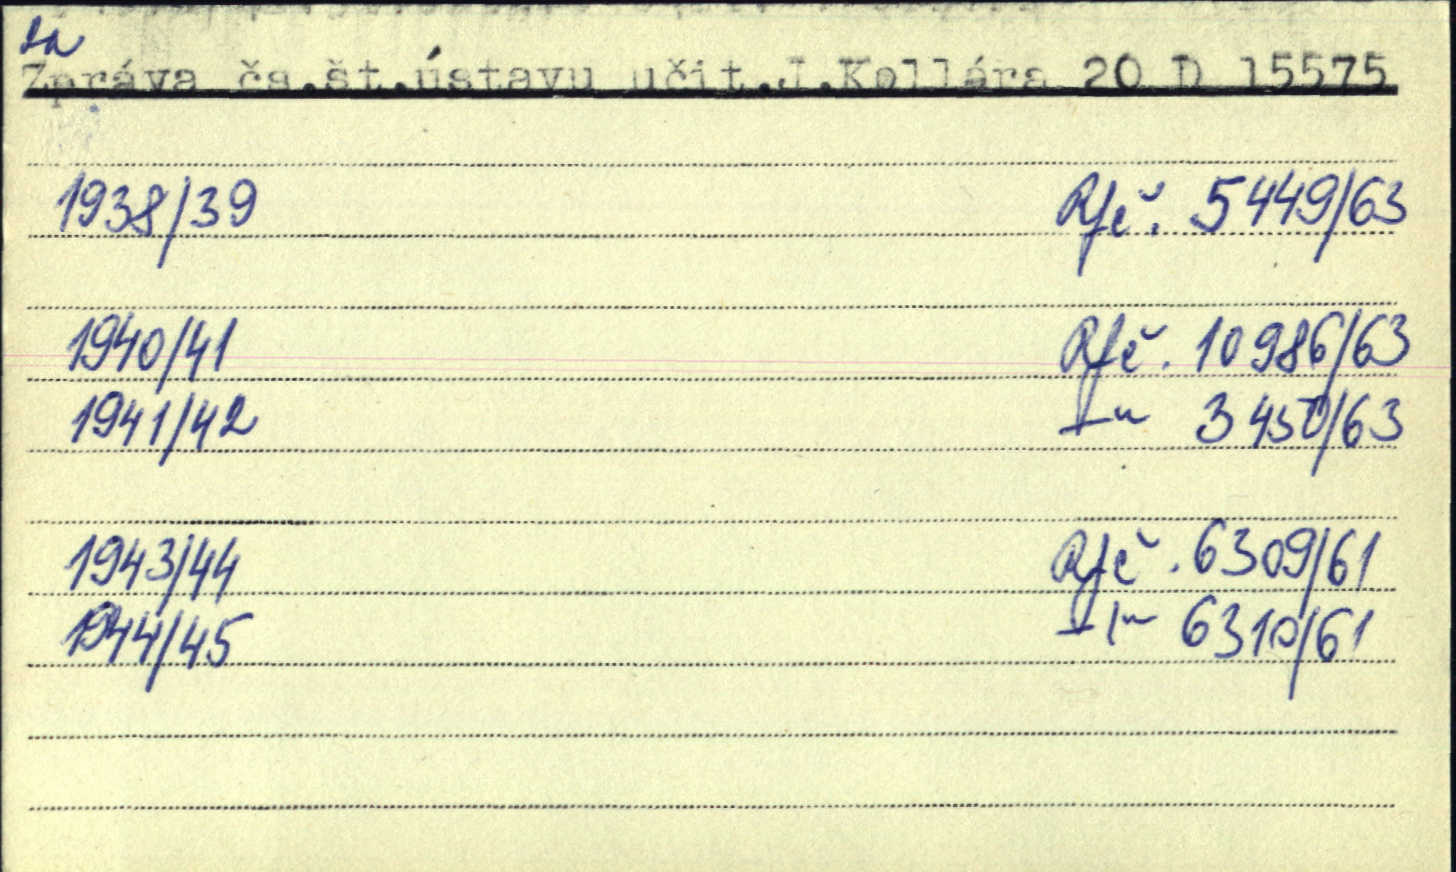 Zpráva čs.št.ústavu učit.J.Kollára 20 D 15575
1938/39 Rfč. 5449/63
1940/41 Rfč. 10986/63
1941/42 3450/63
1943/44 Rfč. 6309/61
1944/45 6310/61